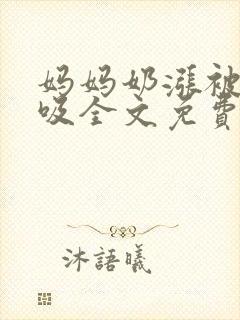 妈妈奶涨被
吸全文免費
沐語曦